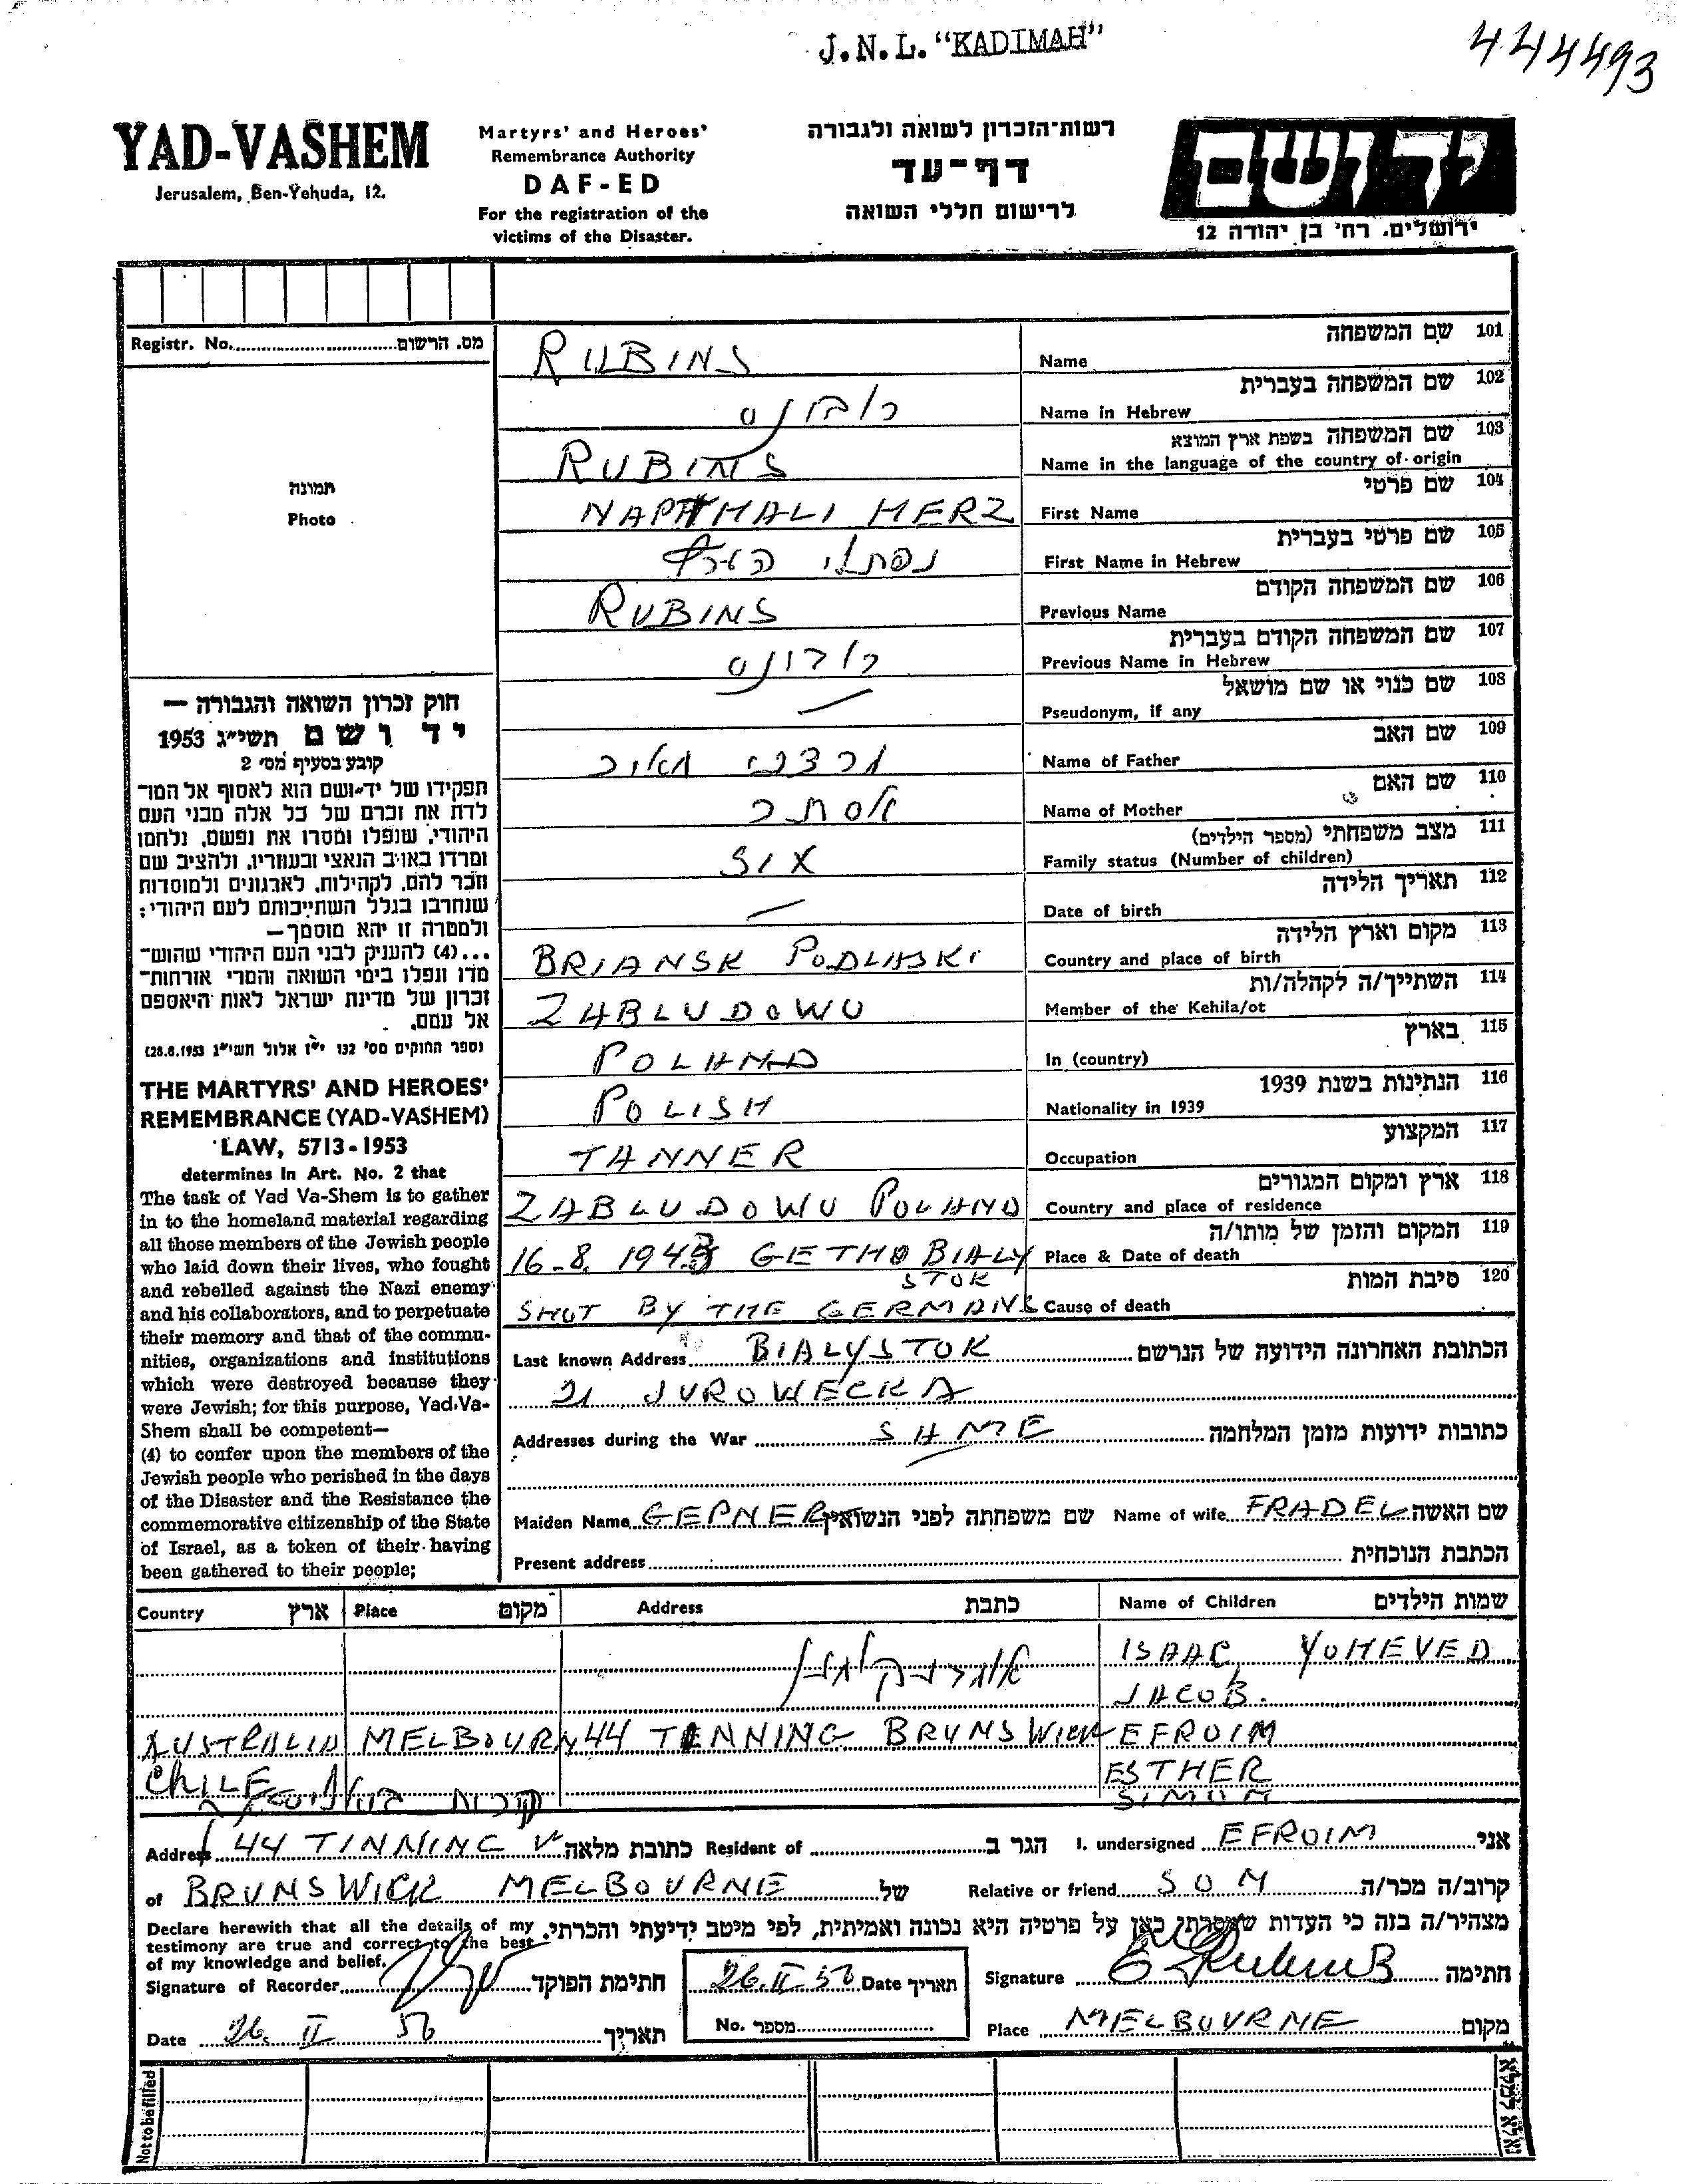 J.N.L. "KADIMAH"
444493
YAD-VASHEM
Jerusalem, Ben-Yehuda, 12.
Martyrs' and Heroes'
Remembrance Authority
DAF-ED
For the registration of the
victims of the Disaster.
רשות־הזכרון לשואה ולגבורה
דף־עד
לרישום חללי השואה
יד ושם
ירושלים, רח' בן יהודה 12
Registr. No. מס. הרשום
תמונה
Photo
RUBINS Name שם המשפחה 101
רובינס Name in Hebrew שם המשפחה בעברית 102
RUBINS Name in the language of the country of origin שם המשפחה בשפת ארץ המוצא 103
NAPHTHALI HERZ First Name שם פרטי 104
נפתלי הערץ First Name in Hebrew שם פרטי בעברית 105
RUBINS Previous Name שם המשפחה הקודם 106
רובינס Previous Name in Hebrew שם המשפחה הקודם בעברית 107
— Pseudonym, if any שם כנוי או שם מושאל 108
מרדכי מאיר Name of Father שם האב 109
אסתר Name of Mother שם האם 110
SIX Family status (Number of children) מצב משפחתי (מספר הילדים) 111
— Date of birth תאריך הלידה 112
BRIANSK PODLIASKI Country and place of birth מקום וארץ הלידה 113
ZABLUDOWU Member of the Kehila/ot השתייך/ה לקהלה/ות 114
POLAND In (country) בארץ 115
POLISH Nationality in 1939 הנתינות בשנת 1939 116
TANNER Occupation המקצוע 117
ZABLUDOWU POLAND Country and place of residence ארץ ומקום המגורים 118
16-8. 1943 GETHO BIALY Place & Date of death המקום והזמן של מותו/ה 119
STOK
SHOT BY THE GERMANS Cause of death סיבת המות 120
חוק זכרון השואה והגבורה —
יד ושם תשי"ג 1953
קובע בסעיף מס' 2
תפקידו של יד־ושם הוא לאסוף אל המו־
לדת את זכרם של כל אלה מבני העם
היהודי, שנפלו ומסרו את נפשם, נלחמו
ומרדו באויב הנאצי ובעוזריו, ולהציב שם
וזכר להם, לקהילות, לארגונים ולמוסדות
שנחרבו בגלל השתייכותם לעם היהודי;
ולמטרה זו יהא מוסמך—
...(4) להעניק לבני העם היהודי שהוש־
מדו ונפלו בימי השואה והמרי אזרחות־
זכרון של מדינת ישראל לאות היאספם
אל עמם.
(ספר החוקים מס' 132 י"ז אלול תשי"ג 28.8.1953)
THE MARTYRS' AND HEROES'
REMEMBRANCE (YAD-VASHEM)
LAW, 5713-1953
determines in Art. No. 2 that
The task of Yad Va-Shem is to gather
in to the homeland material regarding
all those members of the Jewish people
who laid down their lives, who fought
and rebelled against the Nazi enemy
and his collaborators, and to perpetuate
their memory and that of the commu-
nities, organizations and institutions
which were destroyed because they
were Jewish; for this purpose, Yad-Va-
Shem shall be competent—
(4) to confer upon the members of the
Jewish people who perished in the days
of the Disaster and the Resistance the
commemorative citizenship of the State
of Israel, as a token of their having
been gathered to their people;
Last known Address BIALYSTOK הכתובת האחרונה הידועה של הנרשם
21 JUROWECKA
Addresses during the War SAME כתובות ידועות מזמן המלחמה
Maiden Name GEPNER שם משפחתה לפני הנשואין Name of wife FRADEL שם האשה
Present address הכתבת הנוכחית
Country ארץ Place מקום Address כתבת Name of Children שמות הילדים
ISAAC YOHEVED
JACOB.
AUSTRALIA MELBOURN 44 TINNING BRUNSWICK EFROIM
CHILE ESTHER
SIMON
Address 44 TINNING כתובת מלאה Resident of הגר ב I. undersigned EFROIM אני
of BRUNSWICK MELBOURNE של Relative or friend SON קרוב/ה מכר/ה
Declare herewith that all the details of my מצהיר/ה בזה כי העדות שמסרתי כאן על פרטיה היא נכונה ואמיתית, לפי מיטב ידיעתי והכרתי.
testimony are true and correct to the best
of my knowledge and belief.
Signature of Recorder חתימת הפוקד 26.II.56 Date תאריך Signature E Rubins חתימה
Date 26. II 56 תאריך No. מספר Place MELBOURNE מקום
Not to be filled
נא לא למלא